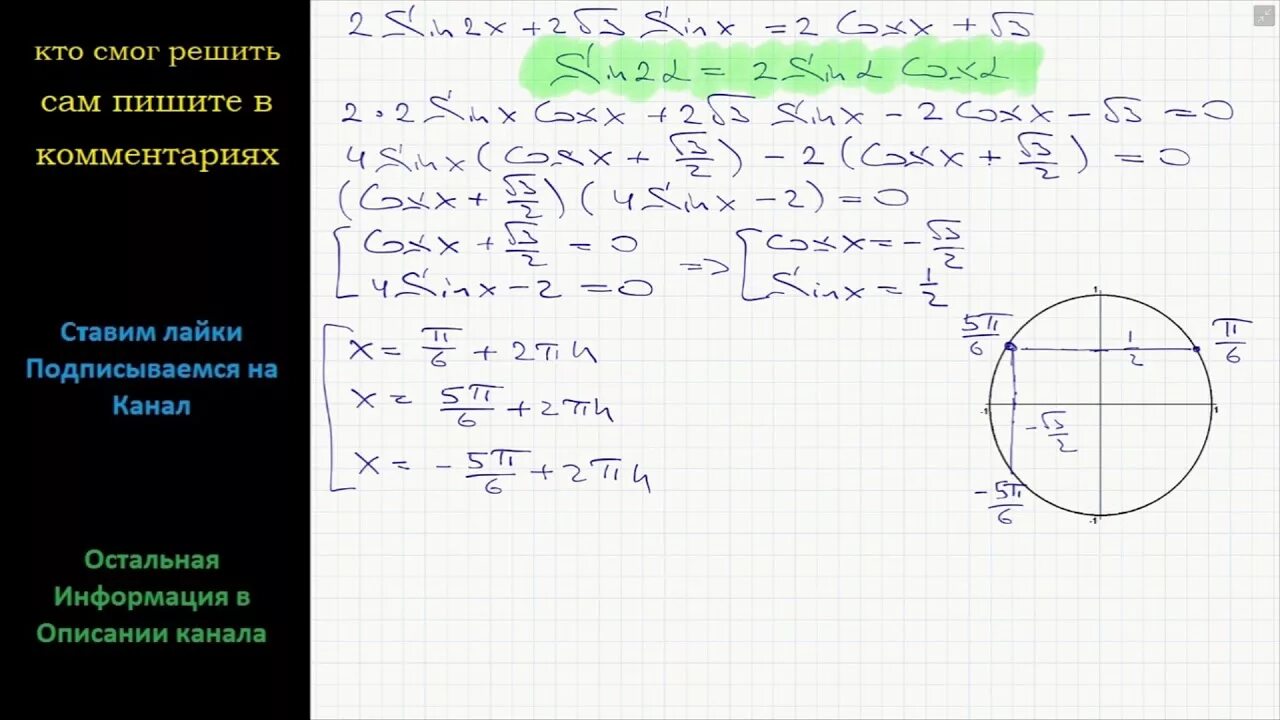 кто смог решить
сам пишите в
комментариях
Ставим лайки
Подписываемся на
Канал
Остальная
Информация в
Описании канала
2 Sin2x + 2√3 Sinx = 2 Cosx + √3
Sin2α = 2Sinα Cosα
2·2Sinx Cosx + 2√3 Sinx - 2Cosx - √3 = 0
4Sinx(Cosx + √3/2) - 2(Cosx + √3/2) = 0
(Cosx + √3/2)(4Sinx - 2) = 0
[ Cosx + √3/2 = 0 => [ Cosx = -√3/2
4Sinx - 2 = 0 Sinx = 1/2
x = π/6 + 2πn
x = 5π/6 + 2πn
x = -5π/6 + 2πn
1
5π/6
1/2
π/6
-1
1
-√3/2
-5π/6
-1